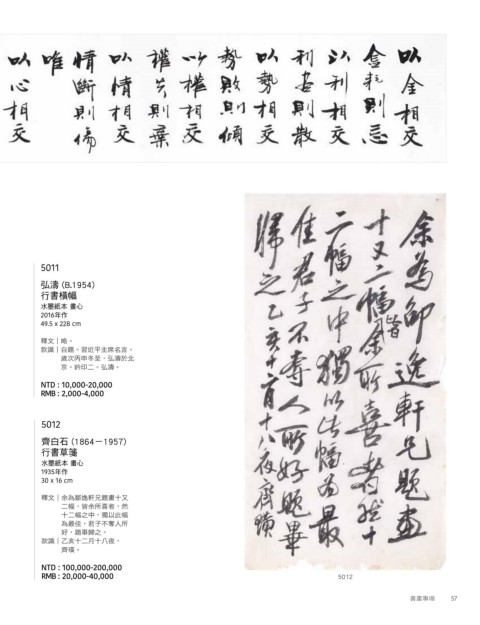 以金相交
金耗則忘
以利相交
利盡則散
以勢相交
勢敗則傾
以權相交
權失則棄
以情相交
情斷則傷
唯
以心相交
5011
弘濤 (B.1954)
行書橫幅
水墨紙本 畫心
2016年作
49.5 x 228 cm
釋文｜略。
款識｜自題。習近平主席名言。
歲次丙申冬至，弘濤於北
京。鈐印二。弘濤。
NTD : 10,000-20,000
RMB : 2,000-4,000
5012
齊白石 (1864－1957)
行書草箋
水墨紙本 畫心
1935年作
30 x 16 cm
釋文｜余為鄒逸軒兄題畫十又
二幅，皆余所喜者，然
十二幅之中，獨以此幅
為最佳，君子不奪人所
好，題畢歸之。
款識｜乙亥十二月十八夜，
齊璜。
NTD : 100,000-200,000
RMB : 20,000-40,000
余為邹逸軒兄題畫
十又二幅皆余所喜者然十
二幅之中獨以此幅為最
佳君子不奪人所好題畢
歸之乙亥十二月十八夜齊璜
5012
書畫專場 57